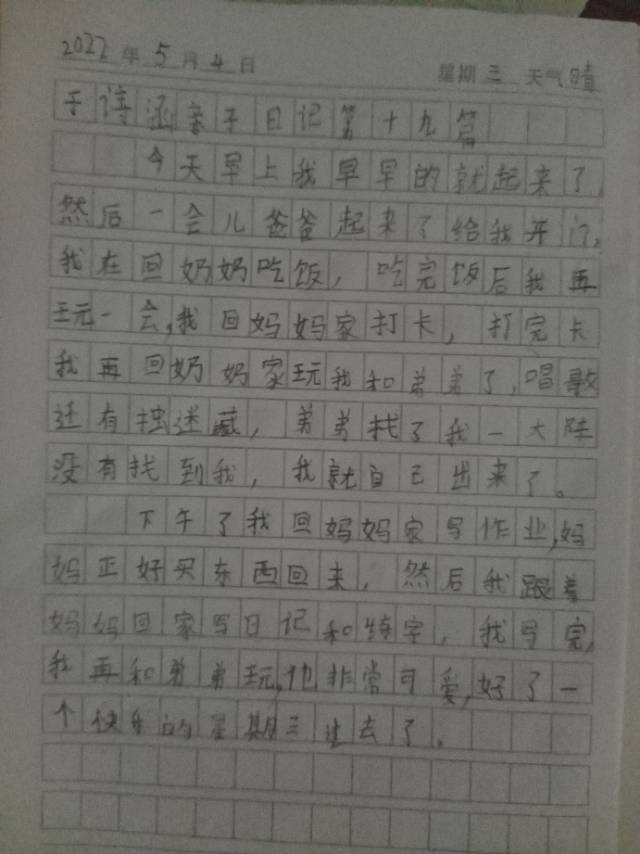 2022年5月4日 星期三 天气晴
于诗涵亲子日记第十九篇
今天早上我早早的就起来了,
然后一会儿爸爸起来了给我开门,
我在回奶奶吃饭,吃完饭后我再
玩一会,我回妈妈家打卡,打完卡
我再回奶奶家玩我和弟弟了,唱歌
还有捉迷藏,弟弟找了我一大阵
没有找到我,我就自己出来了。
下午了我回妈妈家写作业,妈
妈正好买东西回来,然后我跟着
妈妈回家写日记和练字,我写完,
我再和弟弟玩,他非常可爱,好了一
个快乐的星期三过去了。